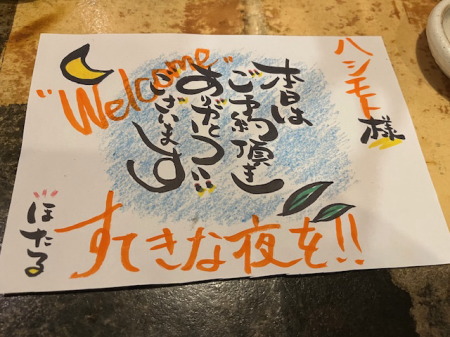 ハシモト様
"Welcome"
本日は
ご予約頂き
ありがとう
ございます
すてきな夜を!!
ほたる